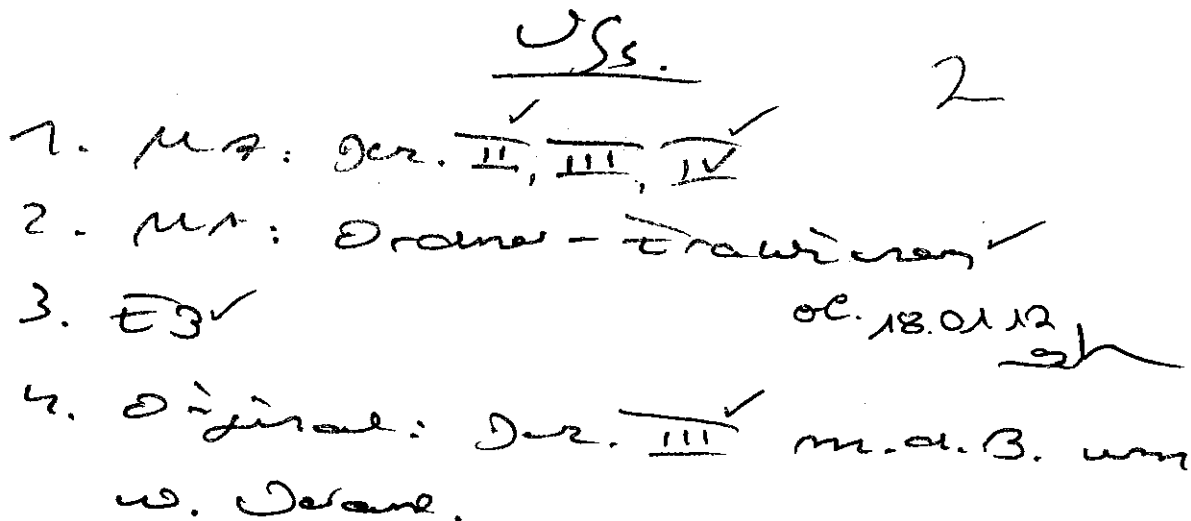 VfG.
2
1. MA: Dez. II, III, IV
2. MA: Ordner - Fraktionen
3. EB
ol. 18.01.12
4. Original: Dez. III m.d.B. um
w. Veranl.